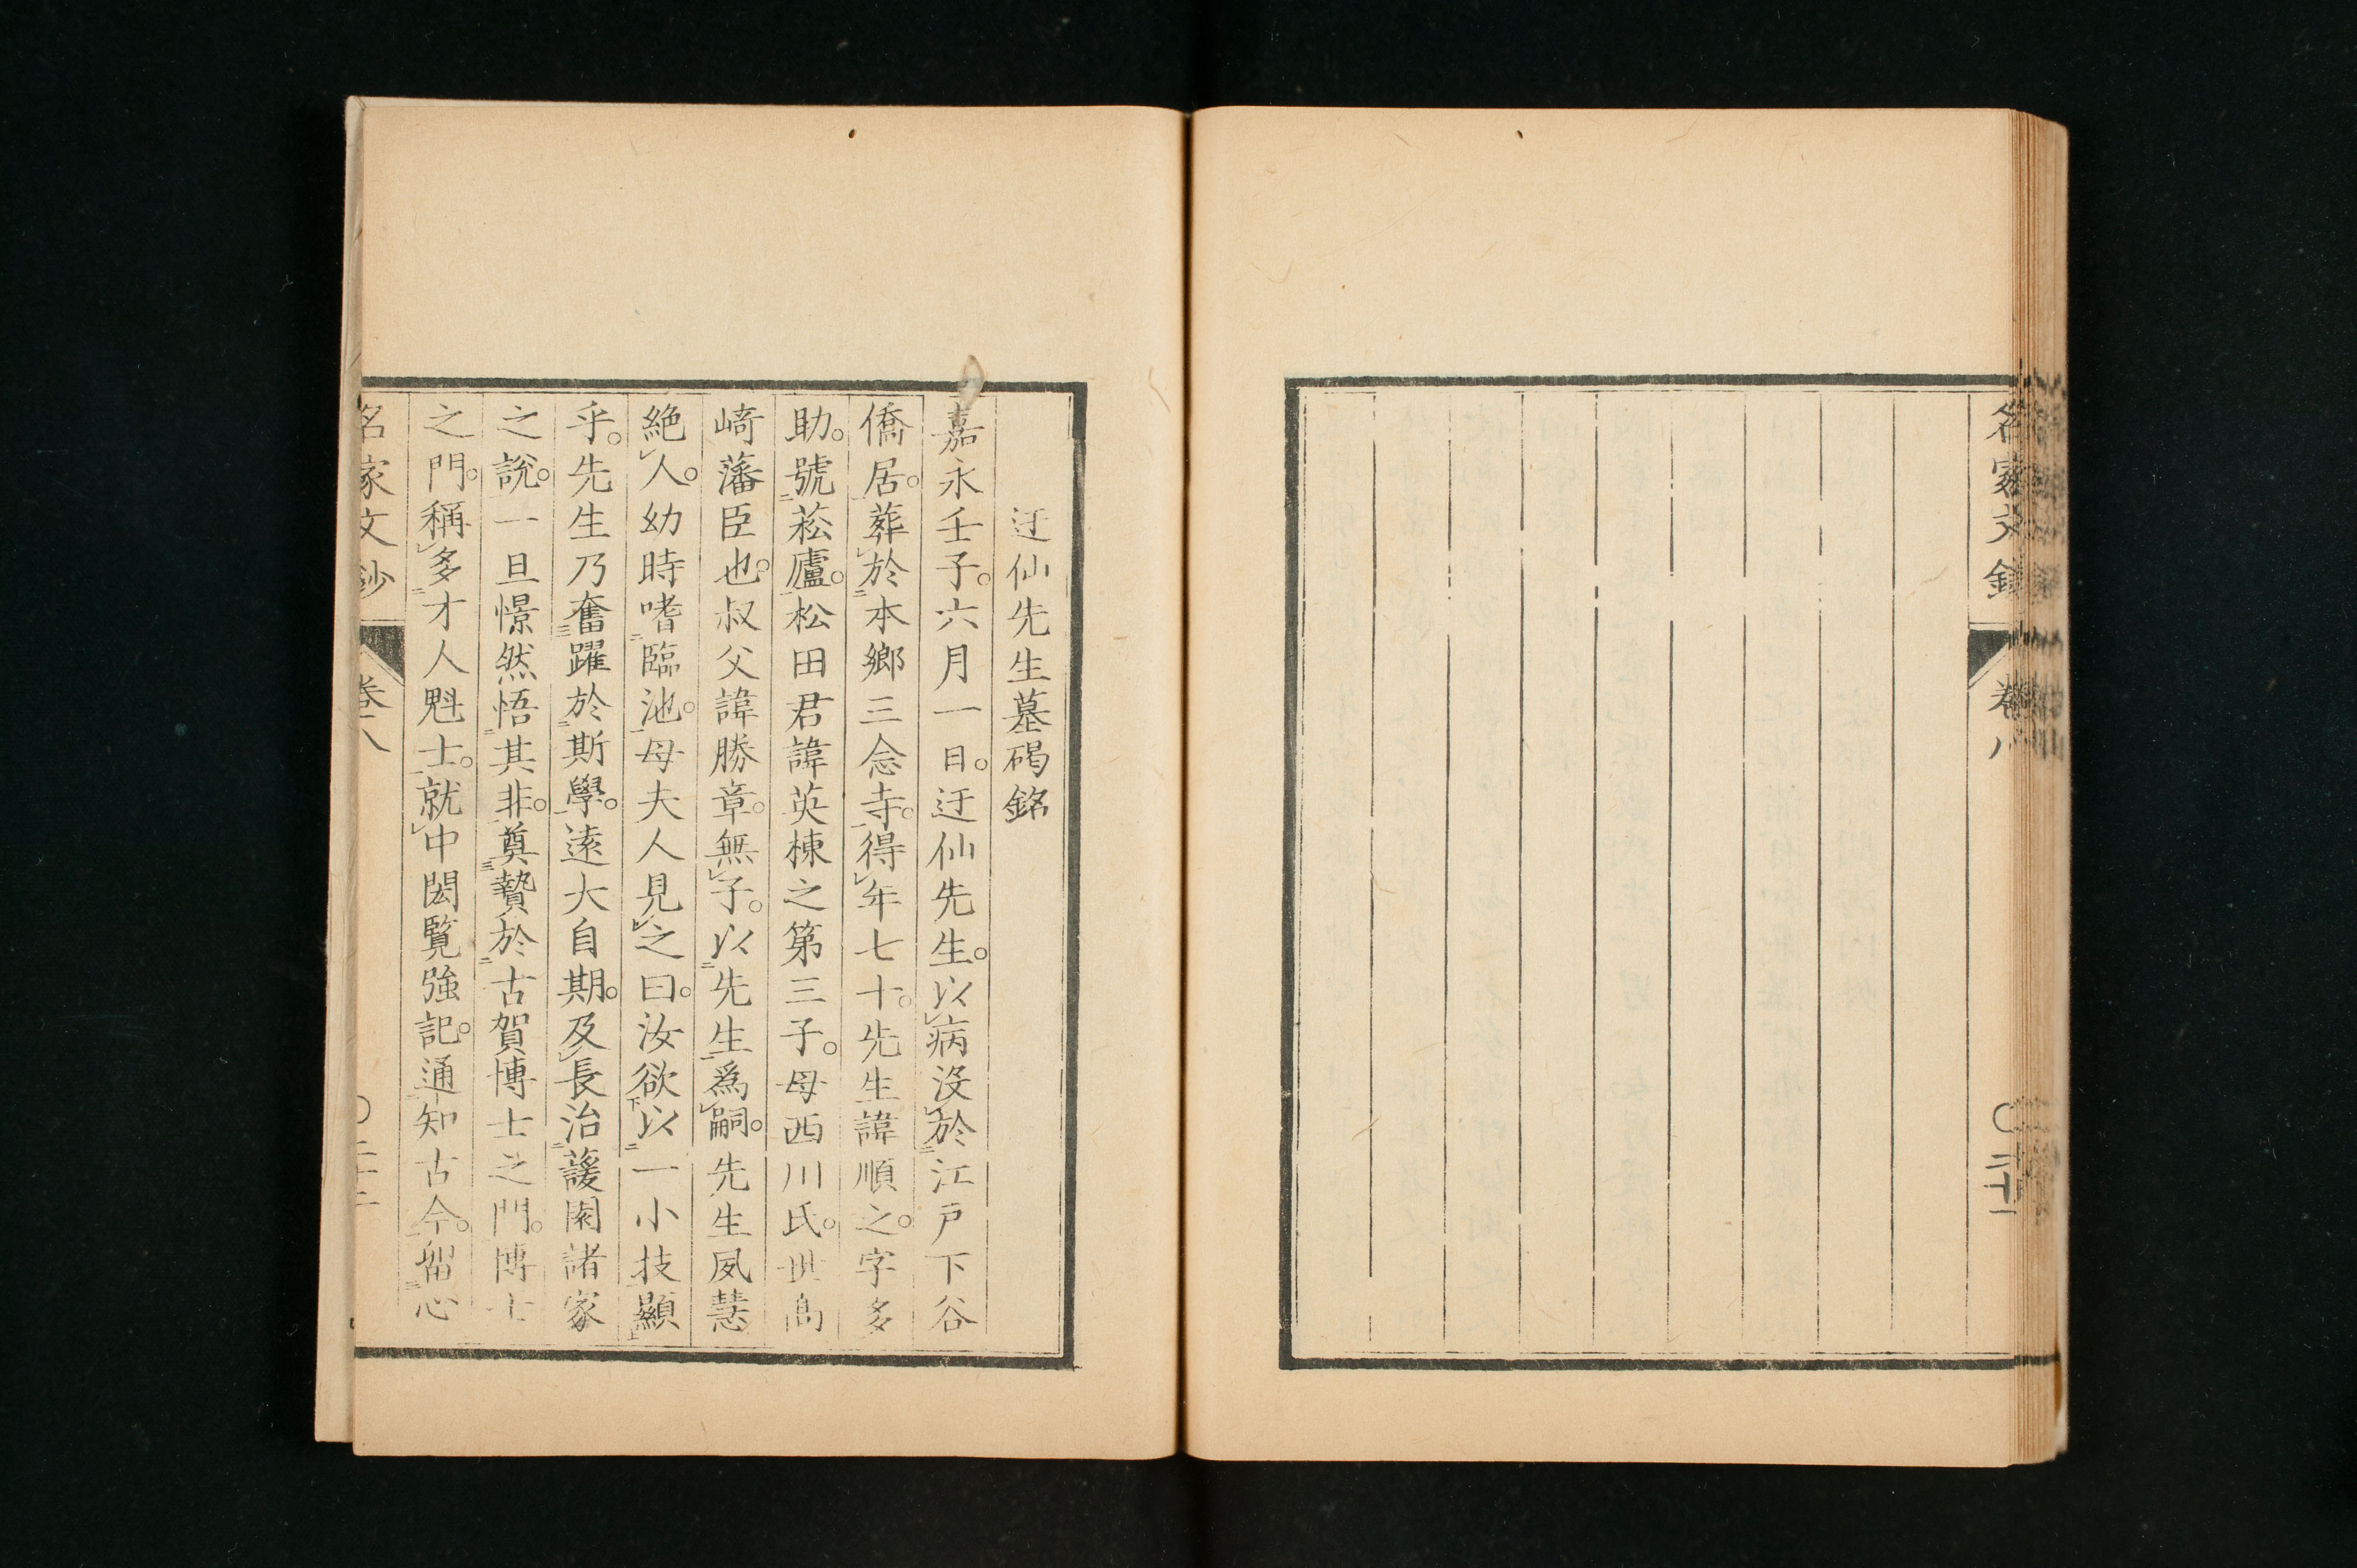 名家文鈔 卷八 〇二十一
迂仙先生墓碣銘
嘉永壬子。六月一日。迂仙先生。以病沒於江戸下谷
僑居。葬於本鄉三念寺。得年七十。先生諱順之。字多
助。號菘廬。松田君諱英棟之第三子。母西川氏。世爲高
崎藩臣也。叔父諱勝章。無子。以先生爲嗣。先生夙慧
絶人。幼時嗜臨池。母夫人見之曰。汝欲以一小技顯
乎。先生乃奮躍於斯學。遠大自期。及長治蘐園諸家
之說。一旦憬然悟其非。奠贄於古賀博士之門。博士
之門。稱多才人魁士。就中閎覽強記。通知古今。留心
名家文鈔 卷八 〇二十二